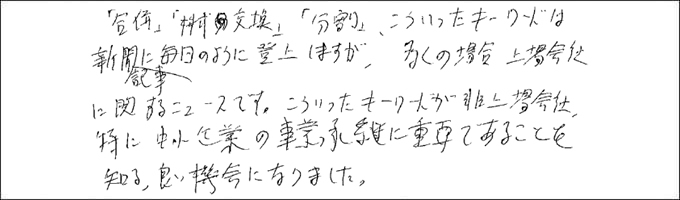 「合併」「株式交換」「分割」、こういったキーワードは
新聞記事に毎日のように登上しますが、多くの場合上場会社
に関するニュースです。こういったキーワードが非上場会社、
特に中小企業の事業承継に重要であることを
知る、良い機会になりました。